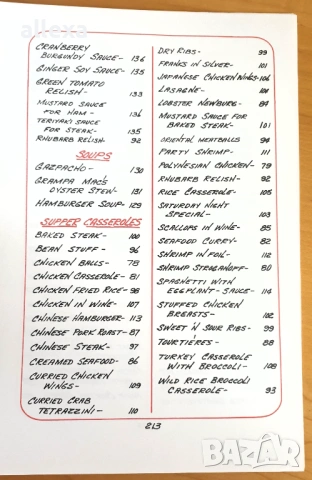 Alexa
CRANBERRY
BURGUNDY SAUCE - 136
GINGER SOY SAUCE - 135
GREEN TOMATO
RELISH - 133
MUSTARD SAUCE
FOR HAM - 136
TERIYAKI SAUCE
FOR STEAK - 135
RHUBARB RELISH - 92
SOUPS
GAZPACHO - 130
GRAMPA MAC'S
OYSTER STEW - 131
HAMBURGER SOUP - 129
SUPPER CASSEROLES
BAKED STEAK - 100
BEAN STUFF - 96
CHICKEN BALLS - 78
CHICKEN CASSEROLE - 81
CHICKEN FRIED RICE - 98
CHICKEN IN WINE - 107
CHINESE HAMBURGER - 113
CHINESE PORK ROAST - 87
CHINESE STEAK - 97
CREAMED SEAFOOD - 86
CURRIED CHICKEN
WINGS - 109
CURRIED CRAB
TETRAZZINI - 110
DRY RIBS - 99
FRANKS IN SILVER - 101
JAPANESE CHICKEN WINGS - 106
LASAGNE - 104
LOBSTER NEWBURG - 84
MUSTARD SAUCE FOR
BAKED STEAK - 101
ORIENTAL MEATBALLS 94
PARTY SHRIMP - 111
POLYNESIAN CHICKEN - 79
RHUBARB RELISH - 92
RICE CASSEROLE - 105
SATURDAY NIGHT
SPECIAL - 103
SCALLOPS IN WINE - 85
SEAFOOD CURRY - 82
SHRIMP IN FOIL - 112
SHRIMP STROGANOFF - 80
SPAGHETTI WITH
EGGPLANT - SAUCE - 114
STUFFED CHICKEN
BREASTS - 102
SWEET 'N SOUR RIBS - 99
TOURTIÈRES - 88
TURKEY CASSEROLE
WITH BROCCOLI - 108
WILD RICE BROCCOLI
CASSEROLE - 93
213
BAZAR.bg